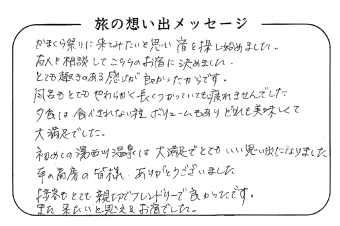 旅の想い出メッセージ
かまくら祭りに来てみたいと思い宿を探し始めました。
友人と相談してこちらのお宿に決めました。
とても趣きのある感じが良かったからです。
もとてもやわらかく長くつかっていても疲れませんでした
夕食は食べきれない程ボリュームもあり どれも美味しくて
大満足でした。
初めての湯西川温泉は大満足でとてもいい思い出になりました
平の高房の皆様 ありがとうございました
接客もとても親切でフレンドリーで良かったです。
また来たいと思えるお宿でした。